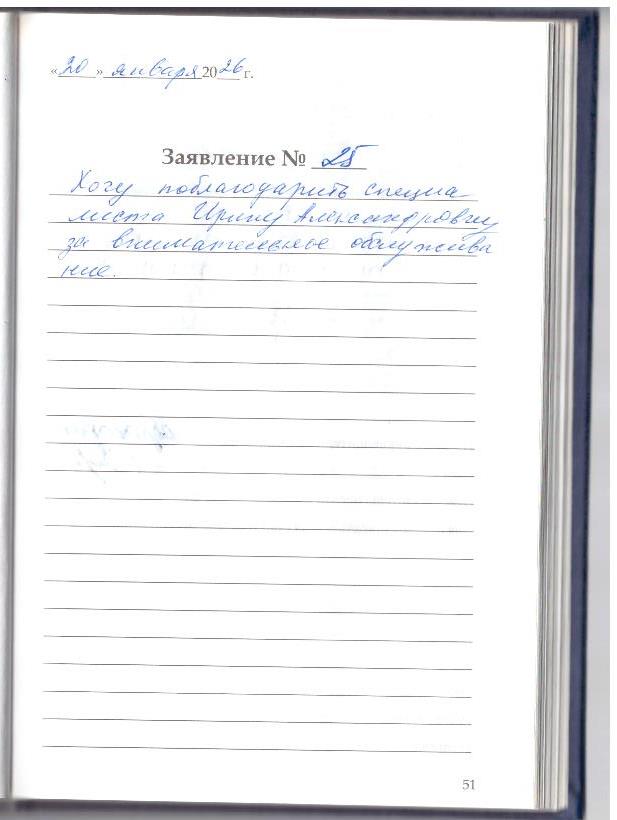 «20» января 2026 г.
Заявление № 25
Хочу поблагодарить специа
листа Ирину Александровну
за внимательное обслужива
ние.
51